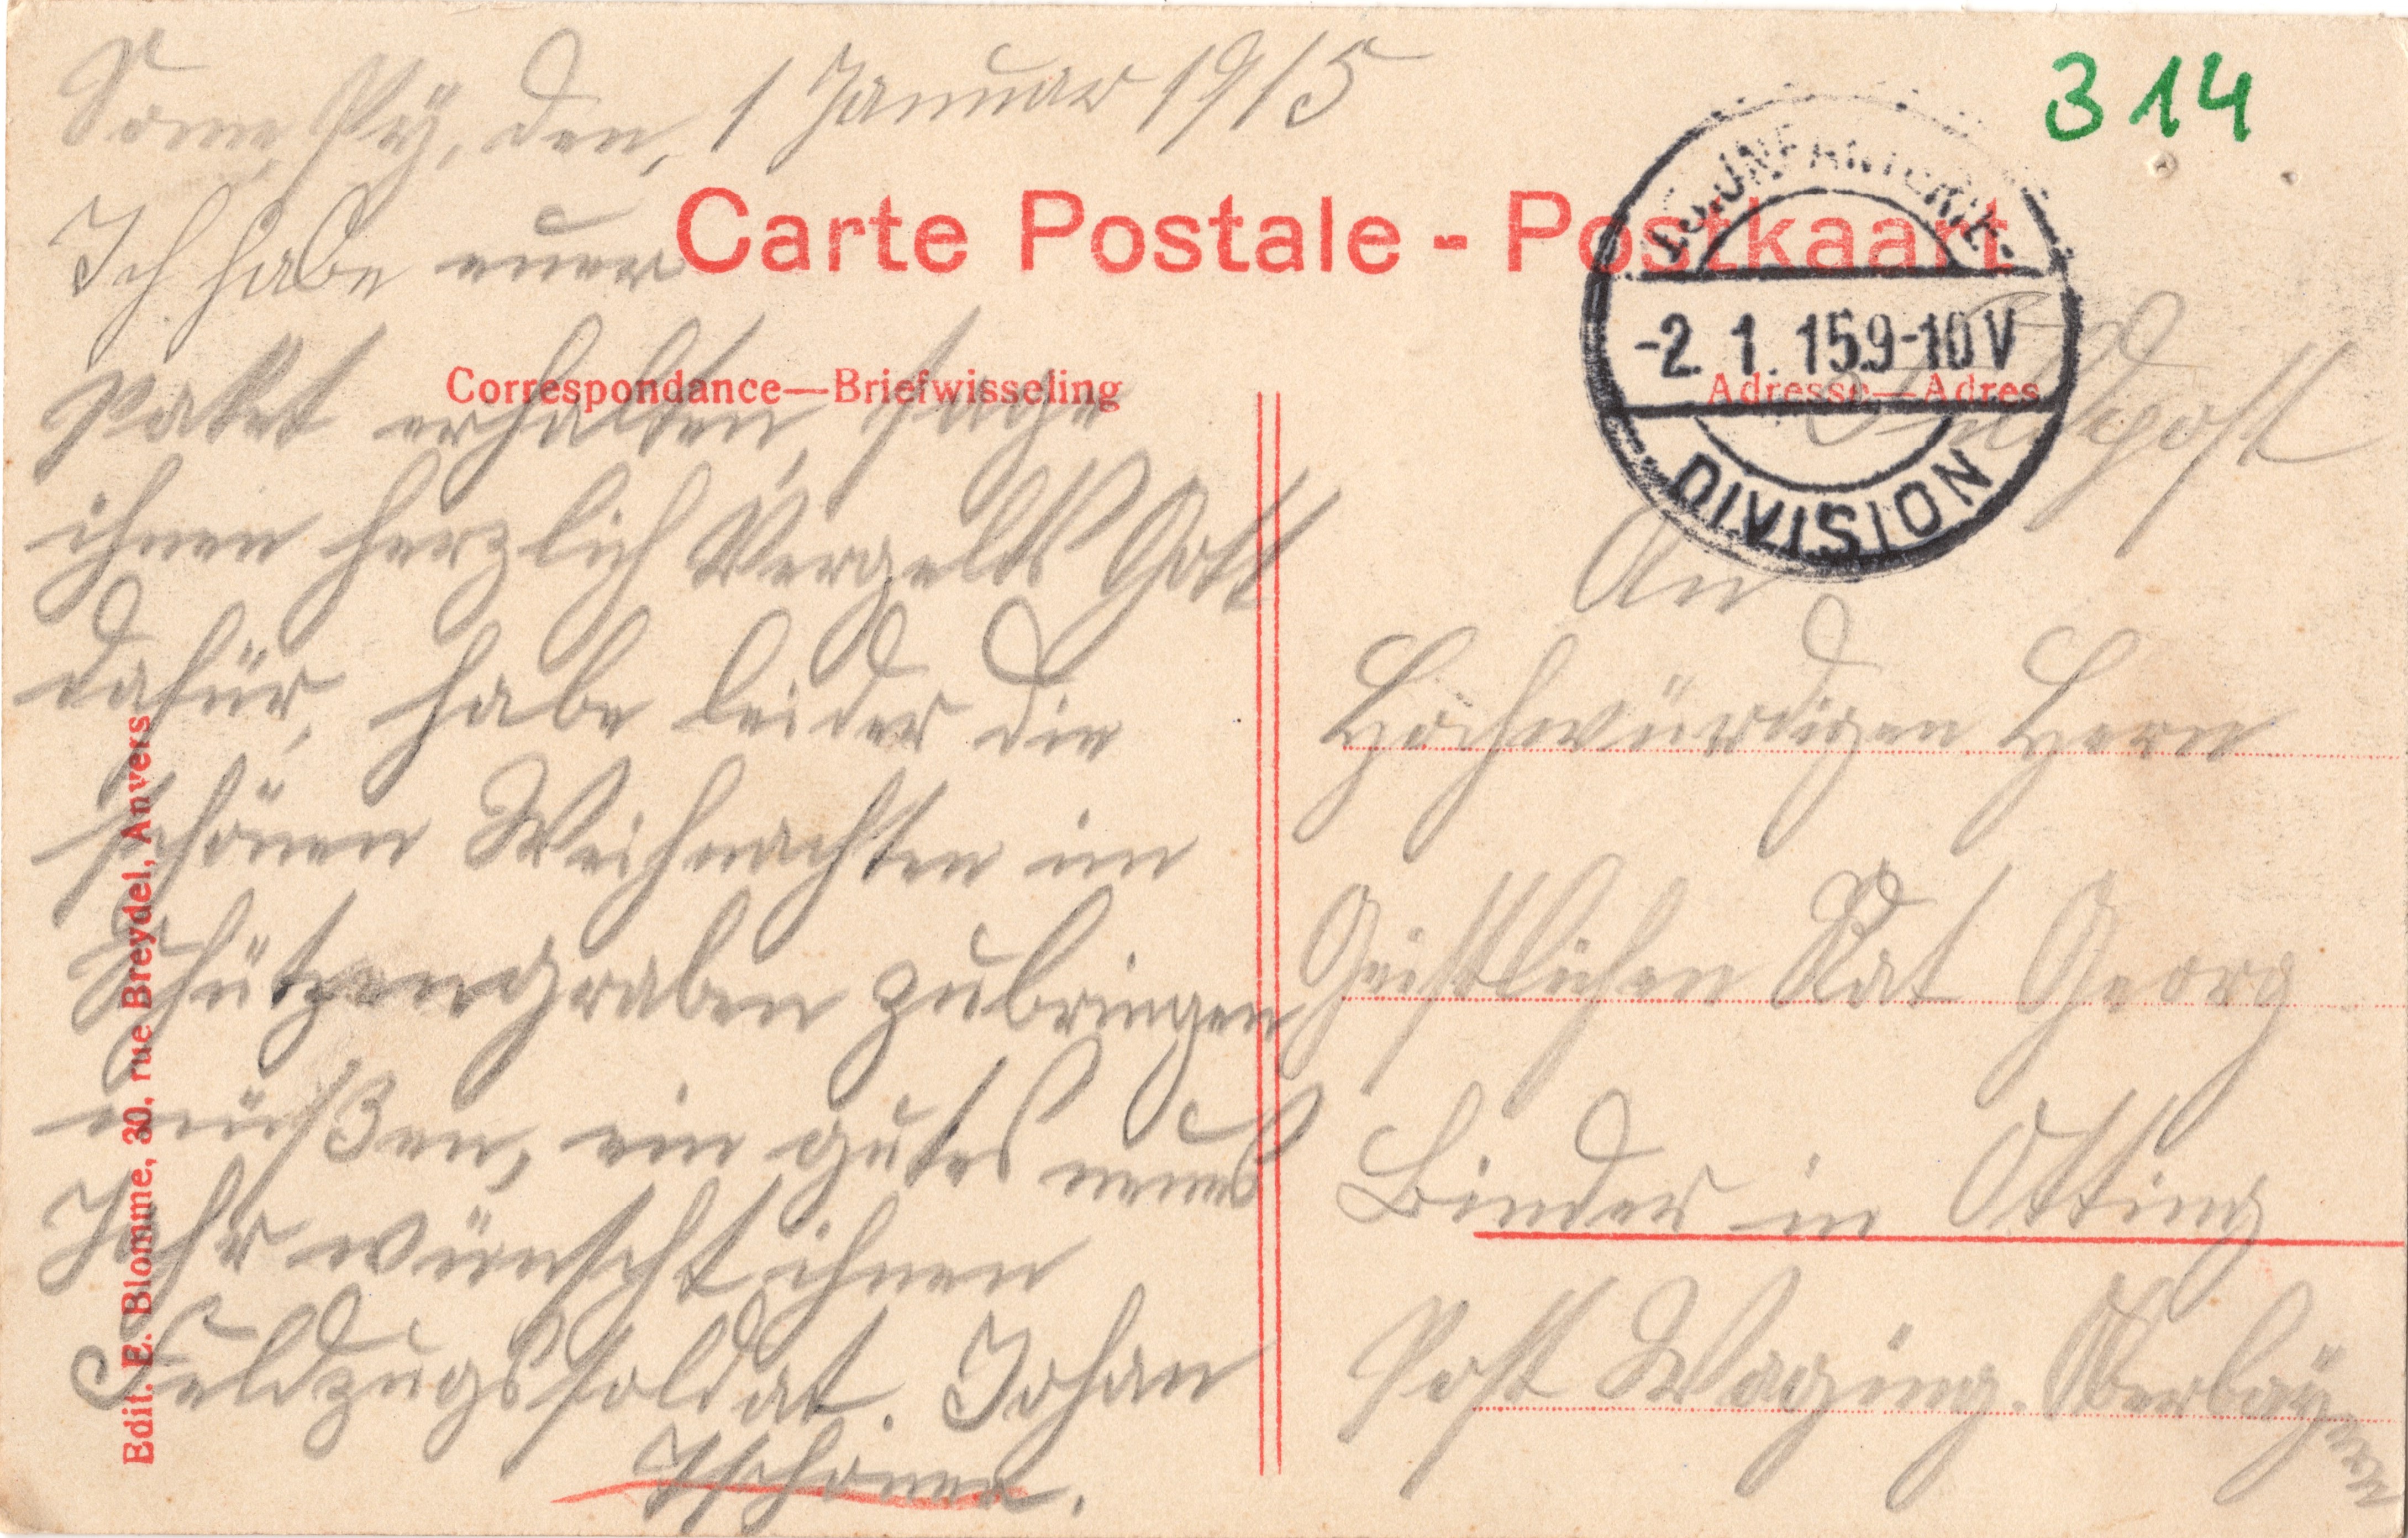 Some Py, den, 1 Januar 1915
314
Ich habe euer
Carte Postale - Postkaart
INFANTERIE
-2. 1. 15 9-10 V
DIVISION
Correspondance—Briefwisseling
Adresse—Adres
Feldpost
Paket erhalten, sage
ihnen herzlich Vergelts Gott
dafür, habe leider die
schönen Weihnachten im
Schützengraben zubringen
müßen, ein gutes neues
Jahr wünscht ihnen
Feldzugssoldat. Johan
An
Hochwürdigen Herrn
Geistlichen Rat Georg
Binder in Otting
Post Waging. Oberbayern
Edit. E. Blomme, 30, rue Breydel, Anvers